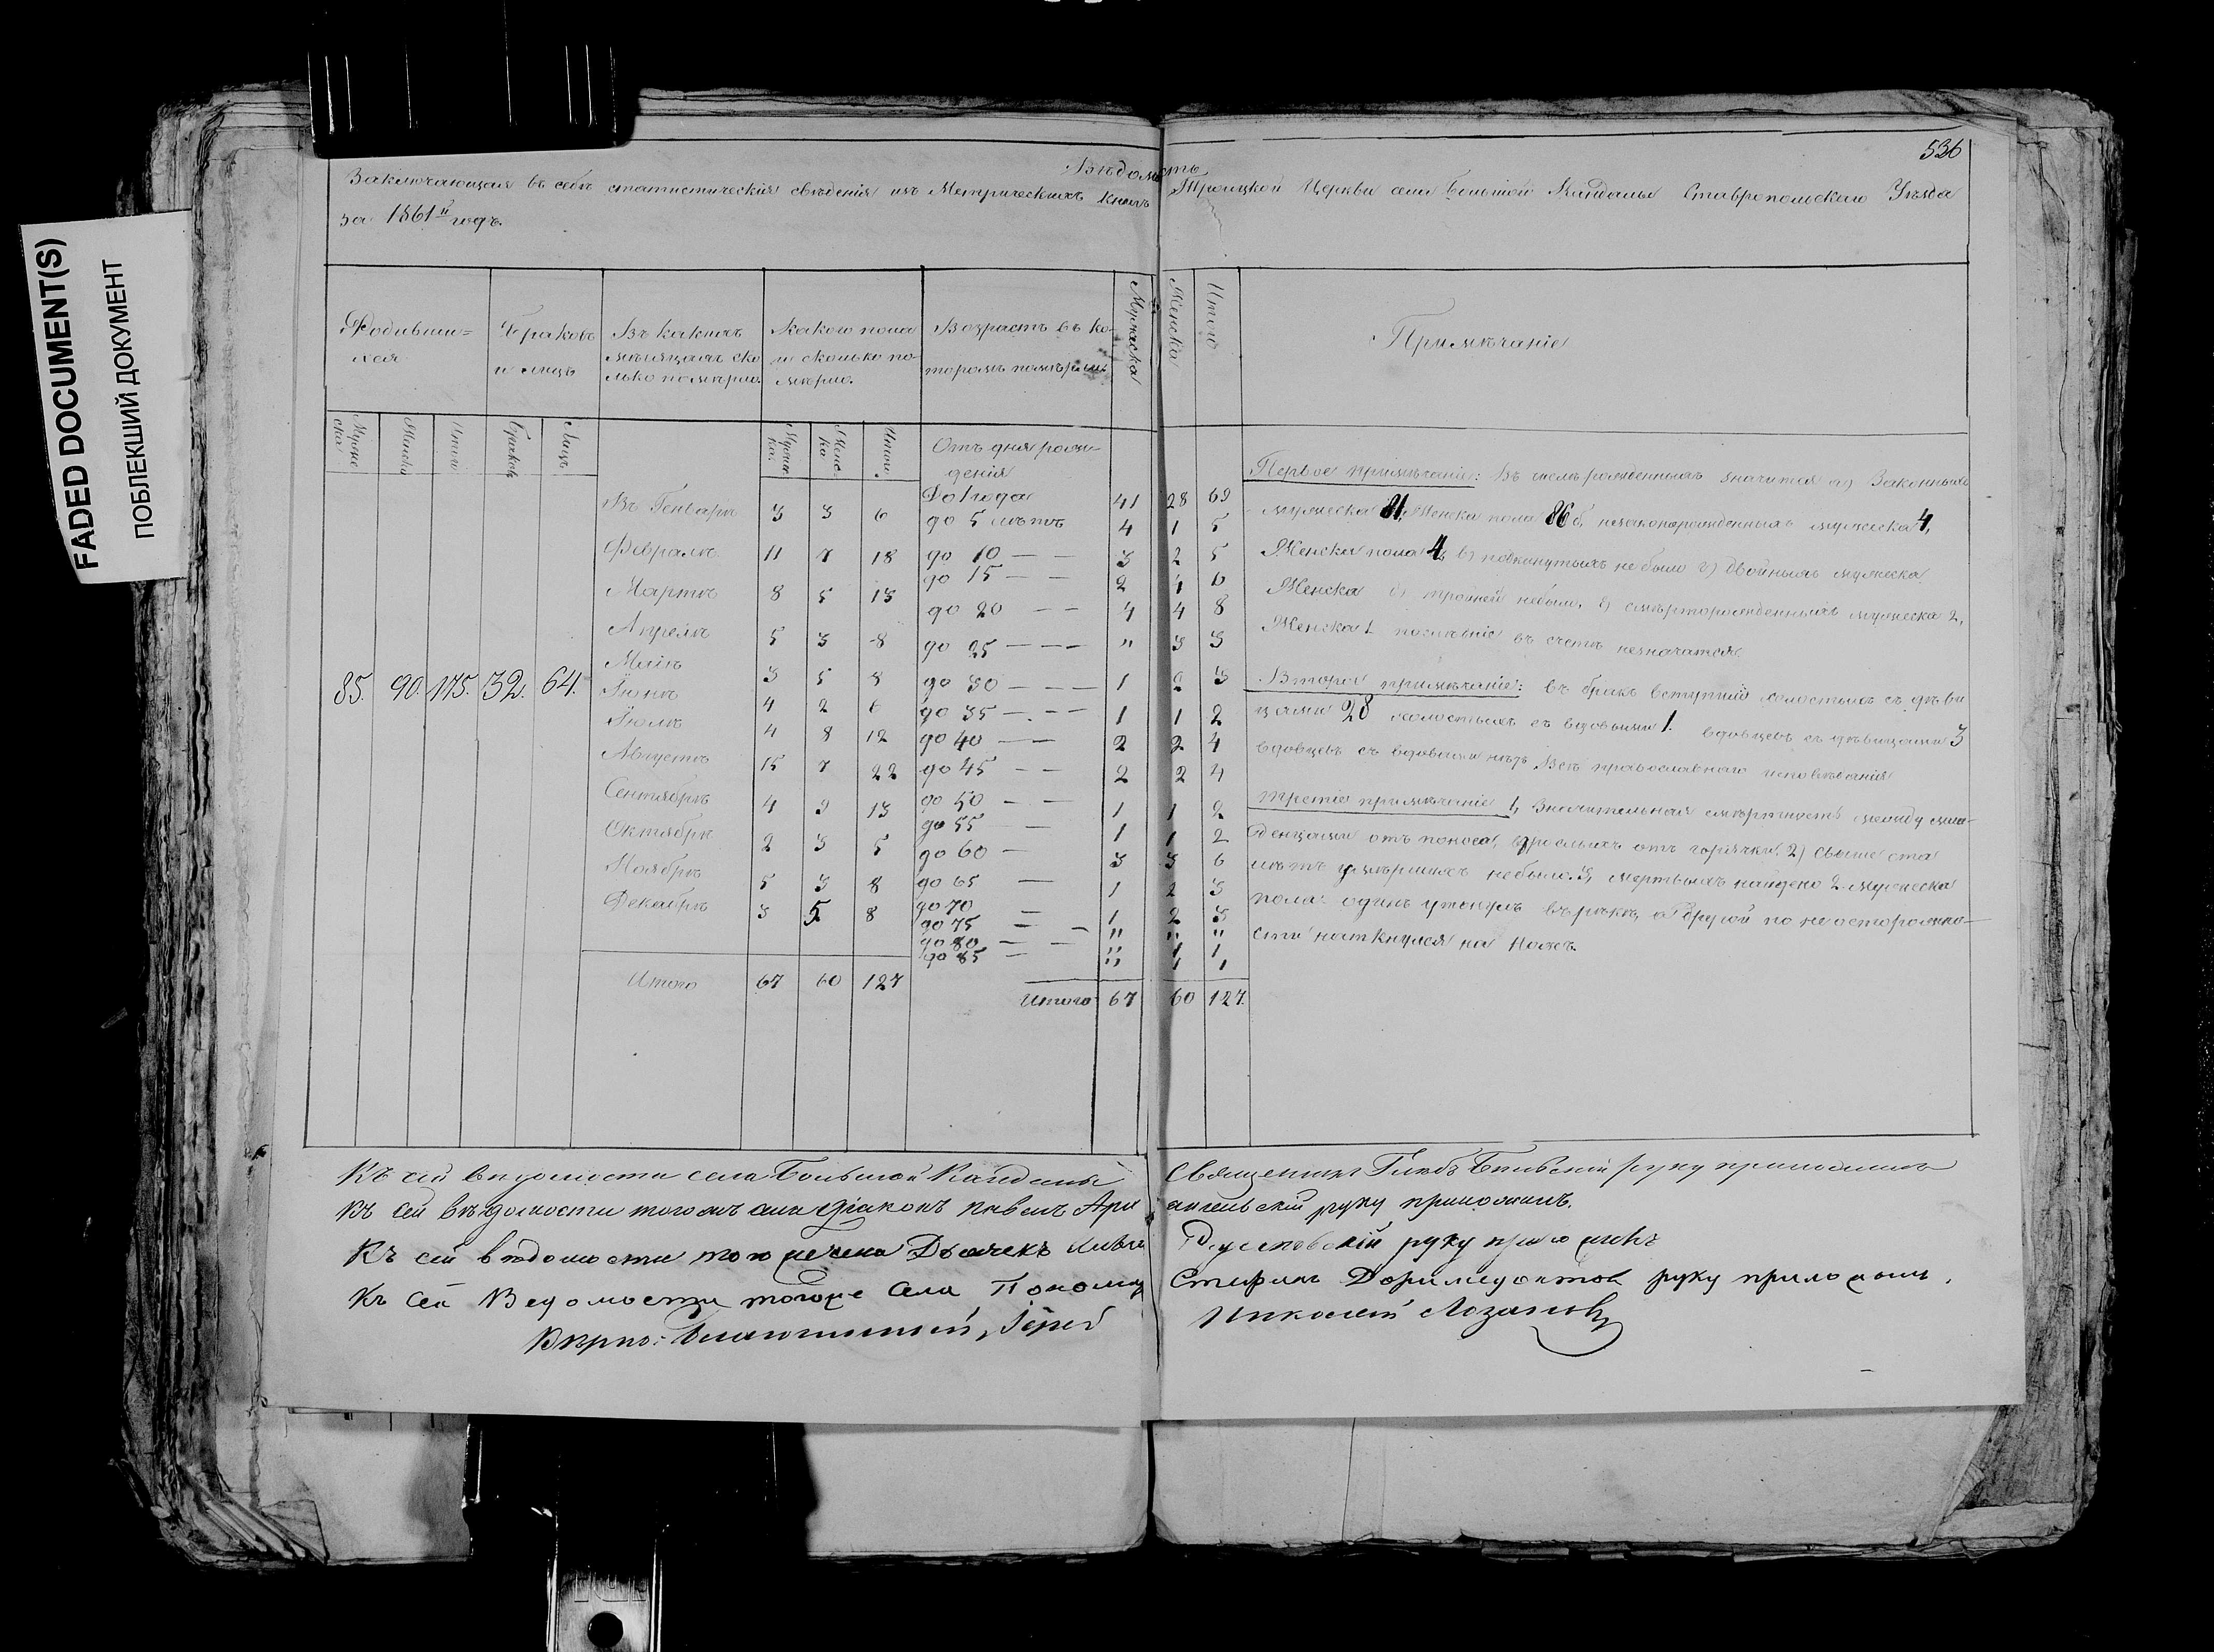 FADED DOCUMENT(S)
ПОБЛЕКШИЙ ДОКУМЕНТ
536
Вѣдомость
Заключающая въ себѣ статистическія свѣденія изъ Метрическихъ книгъ Троицкой Церкви села Большой Кандалы Ставропольскаго Уѣзда
за 1861й годъ.
Родивши-
хся
Браковъ
и лицъ
Въ какихъ
мѣсяцахъ ско
лько померло.
Какого пола
и сколько по-
мерло.
Возрастъ въ ко-
торомъ померли
Мужеска
Женска
Итого
Примѣчаніе
Мужес
ска
Женска
Итого
Браковъ
Лицъ
Мужес
ка.
Женс
ка
Итого
Отъ дня рож-
денія
85. 90. 175. 32. 64.
Въ Генварѣ 3 3 6
Февралѣ 11 7 18
Мартѣ 8 5 13
Апрелѣ 5 3 8
Маіѣ 3 5 8
Іюнѣ 4 2 6
Іюлѣ 4 8 12
Августѣ 15 7 22
Сентябрѣ 4 9 13
Октябрѣ 2 3 5
Ноябрѣ 5 3 8
Декабрѣ 3 5 8
Итого 67 60 127
До 1 года 41 28 69
до 5 лѣтъ 4 1 5
до 10 — — 3 2 5
до 15 — — 2 4 6
до 20 — — 4 4 8
до 25 — — — " 3 3
до 30 — — — 1 2 3
до 35 — — — 1 1 2
до 40 — — 2 2 4
до 45 — — 2 2 4
до 50 — — 1 1 2
до 55 — 1 1 2
до 60 — 3 3 6
до 65 — 1 2 3
до 70 — 1 2 3
до 75 — — " " "
до 80 — — " 1 1
до 85 — " 1 1
Итого 67 60 127.
Первое примѣчаніе: Въ числѣ рожденныхъ значится а) Законныхъ
мужеска 81, Женска пола 86 б, незаконорожденныхъ мужеска 4,
Женска пола 4, в) подкинутыхъ не было г) двойныхъ мужеска
Женска д) тройней небыло, е) смерторожденныхъ мужеска 2,
Женска 1 послѣдніе въ счетѣ незначатся.
Второе примѣчаніе: въ бракъ вступили холостыхъ съ дѣви
цами 28 холостыхъ съ вдовыми 1. вдовцевъ съ дѣвицами 3
вдовцевъ съ вдовами нѣтъ Всѣ православнаго исповѣданія
Третіе примѣчаніе 1, Значительная смертность между мла-
денцами отъ поноса, взрослыхъ отъ горячки. 2) Свыше ста
лѣтъ умершихъ небыло. 3, Мертвыхъ найдено 2 мужеска
пола: одинъ утонулъ въ рѣкѣ, а другой по не осторожно-
сти наткнулся на ножъ.
Къ сей вѣдомости села Большой Кандалы Священникъ Глебъ руку приложилъ
Къ сей вѣдомости тогожъ села Діаконъ Павелъ Архангельскій руку приложилъ.
Къ сей вѣдомости того жъ села Дьячекъ руку приложилъ
Къ сей Ведомости тогоже Села Пономарь Стефанъ Доримедонтовъ руку приложилъ.
Вѣрно: Благочинный, Іерей Николай Лозановъ